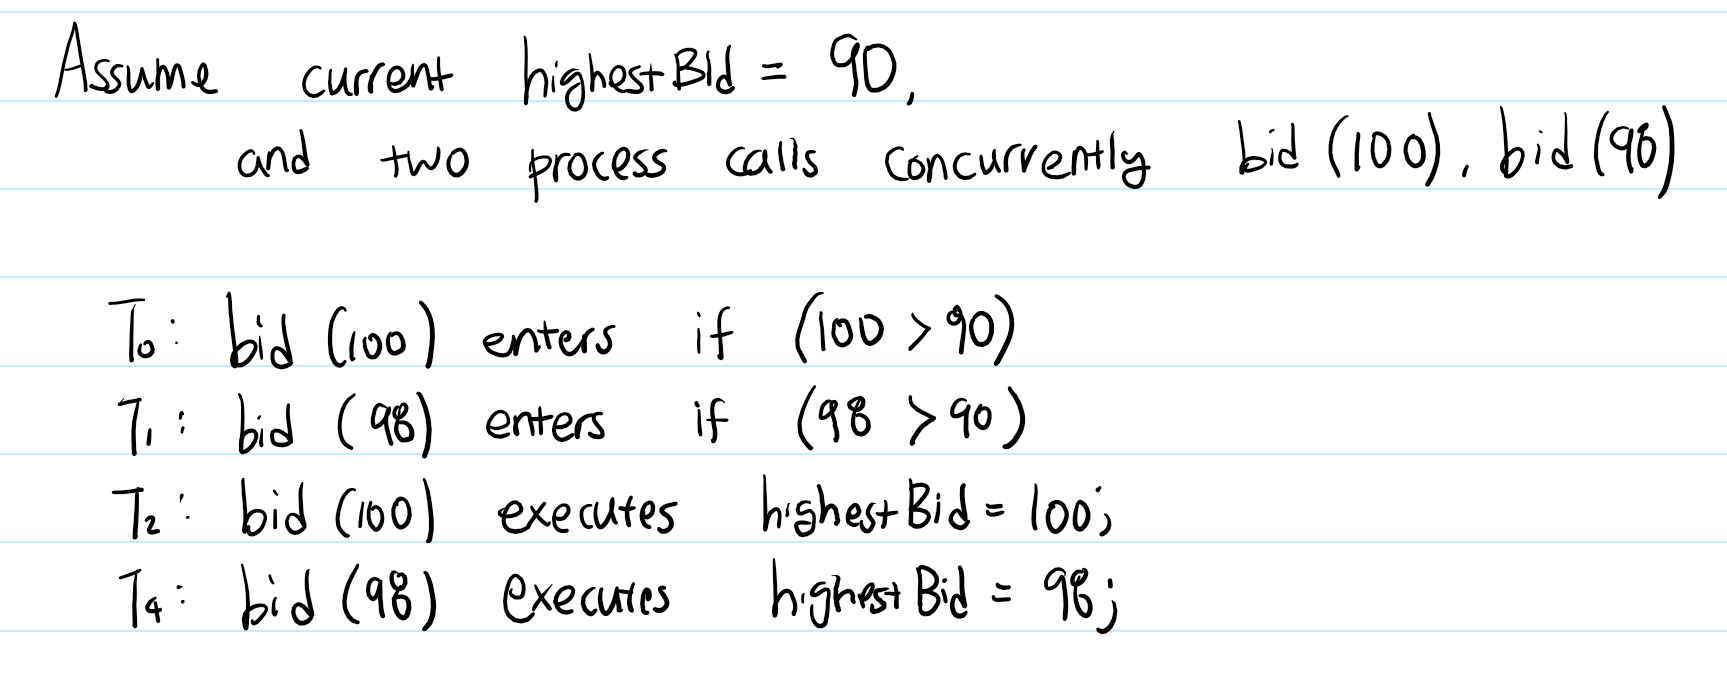 Assume current highestBid = 90,
and two process calls concurrently bid (100), bid (98)
T0: bid (100) enters if (100 > 90)
T1: bid (98) enters if (98 > 90)
T2: bid (100) executes highestBid = 100;
T4: bid (98) executes highestBid = 98;